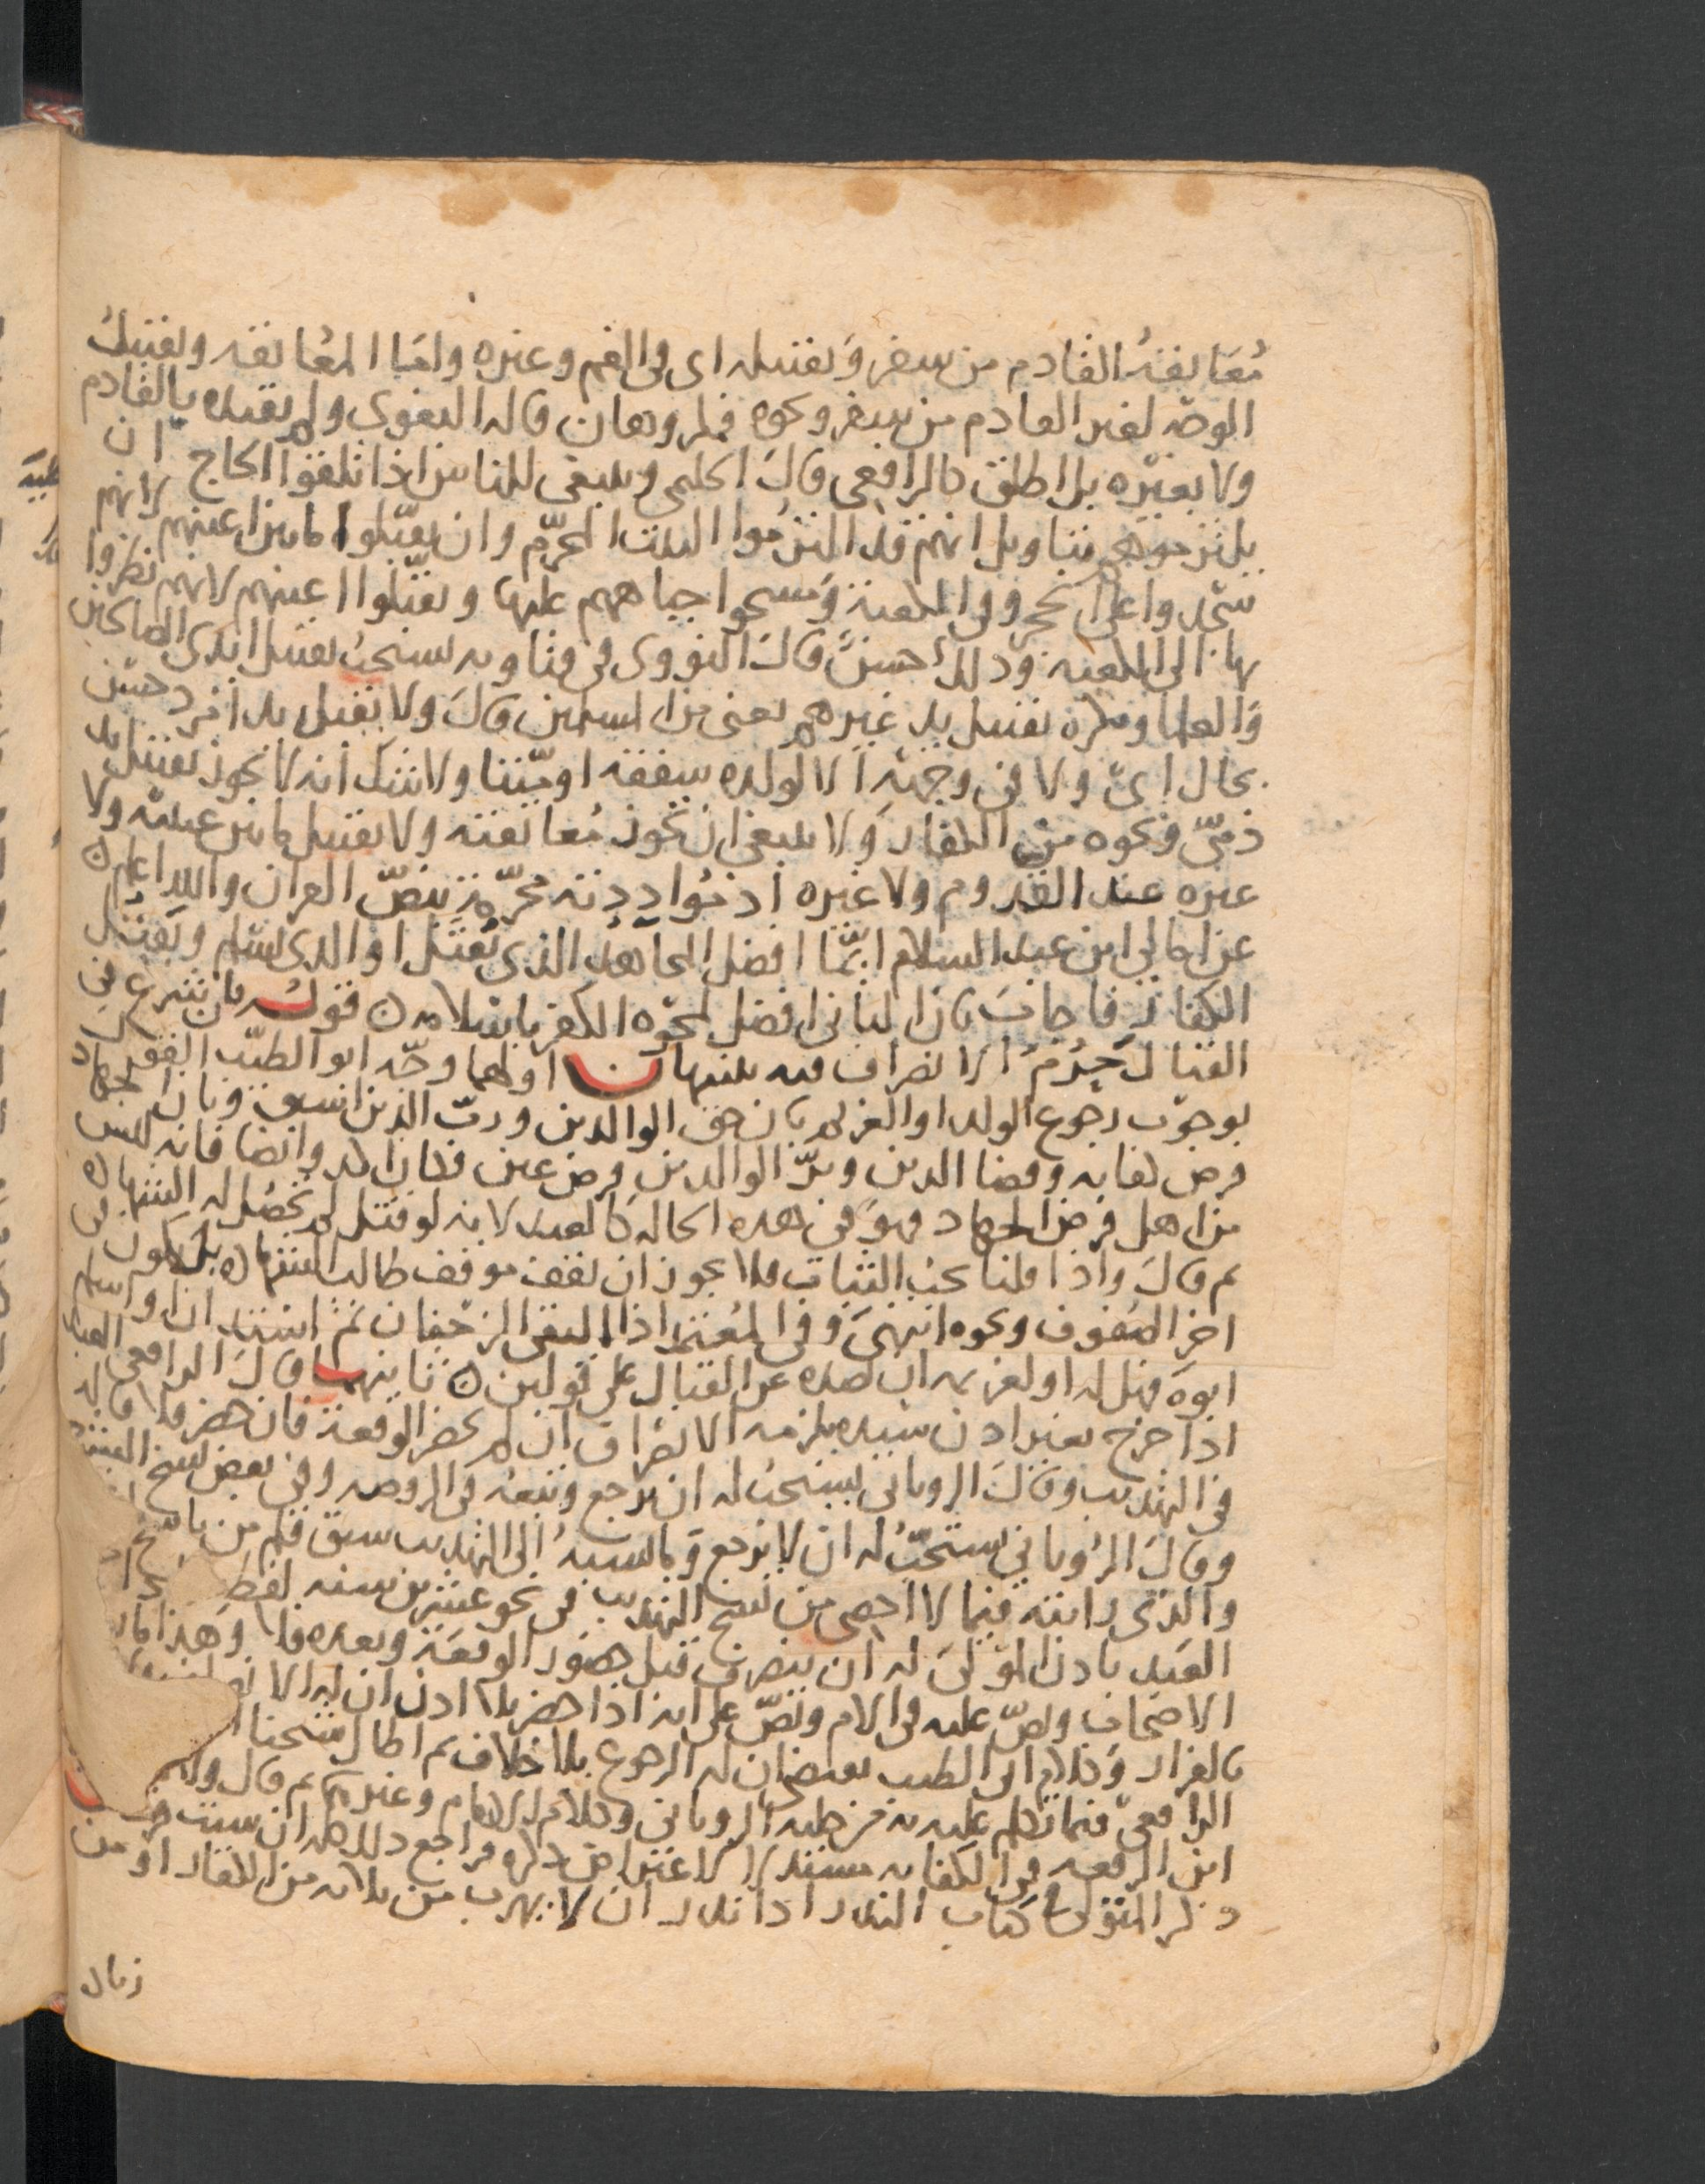 مُعَانقةُ القادم من سفر وَتقبيله اى فى الفم وغيره وامّا المُعانقه وتقبيلُ
الوجه لغير القادم من سفر ونحوه فمكروهان قاله البغوى ولم يقيده بالقادم
ولا بغيره بل اطلق كالرافعى قالَ الحليمى وينبغى للناس اذا تلقوا الحاج ان
يلتزموهم بتاويل انهم قد التزمُوا البيت المحرّم وان يقبّلوا ما بين اعينهم لانهم
سجدوا على الحجر وفى الكعبة وَمسحوا جباههم عليها ويقبّلوا اعينهم لانهم نظروا
بها الى الكعبه وذلك احسنُ قالَ النووى فى فتاويه يستحبُ تقبيل ايدى الصالحين
وَالعلما ويكره تقبيل يد غيرهم يعنى من المسلمين قالَ ولا يقبل يد امرد حسَن
بحال اىّ ولا فى وجهه الا لولده شفقه او ميّتا ولا شك انه لا يجوز تقبيل يد
ذمّىّ ونحوه من الكفار وَلا ينبغى ان تجوز مُعانقته ولا تقبيل ما بين عينيه ولا
غيره عند القدوم ولا غيره اذ مُواددته محرّمة بنصّ القران والله اعلم ن
عز الدين ابن عبد السلام ايّما افضل المجاهدُ الذى يُقتَل او الذى يسلم ويَقتُل
الكفار فاجابَ بان الثانى افضل لمحوه الكفر باسلامه ن قولـــه فان شرع فى
القتال حَرُمَ الانصراف فيه تنبيهان اولهما وجّه ابو الطيّب القول
بوجوب رجوع الولد او الغريم بان حق الوالدين وربّ الدين اسبق وبان الجهاد
فرض كفايه وقضا الدين وبرّ الوالدين فرض عين فكان اكد وايضا فانه ليس
من اهل فرض الجهاد فهوَ فى هذه الحاله كالعبد لانه لو قتل لم تحصُل له الشهاده
ثم قالَ واذا قلنا يجبُ الثبات فلا يجوز ان يقف موقف طالب الشهاده بل يكون فى
اخر الصُفوف ونحوه انتهىَ وفى المُعتمد اذا التقى الزحفان ثم استدان او اسلم
ابوه فهل له او لغريمه ان يصده عن القتال على قولين ن ثانيهما قالَ الرافعى العبد
اذا خرج بغير اذن سيده يلزمه الانصراف ان لم يحضر الوقعة فان حضر فلا قاله
فى التهذيب وقالَ الرويانى يستحبُ له ان يرجع وتبعهُ فى الروضه وفى بعض نسخ الشرح
وقالَ الرُويانى يستحبّ له ان لا يرجع وَما نسبهُ الى التهذيب سبق قلم من ناسخ
والذى رايته فيما لا احصى من نسخ التهذيب فى نحو عشرين سنه لفظ
العَبد باذن المولىَ له ان ينصرف قبل حضور الوقعَة وبعده فلا وَهذا ما
الاصحاب ونصّ عليه فى الام ونصّ على انه اذا حضر بلا اذن ان له الا
كالفرار وَكلام ابى الطيب يقتضى ان له الرجوع بلا خلاف ثم اطال شيخنا
الرافعىّ فيما تكلم عليه به فى خطبه الرويانى وكلام الامام وغيرهم ثم قال
ابن الرفعه فى الكفايه مستندا لاعتراض ذكره فراجع ذلك كله ان شيت
ذكر المتولىُ كتاب النذر اذا نذر ان لا يهرب من ثلاثه من الكفار او من
زمان